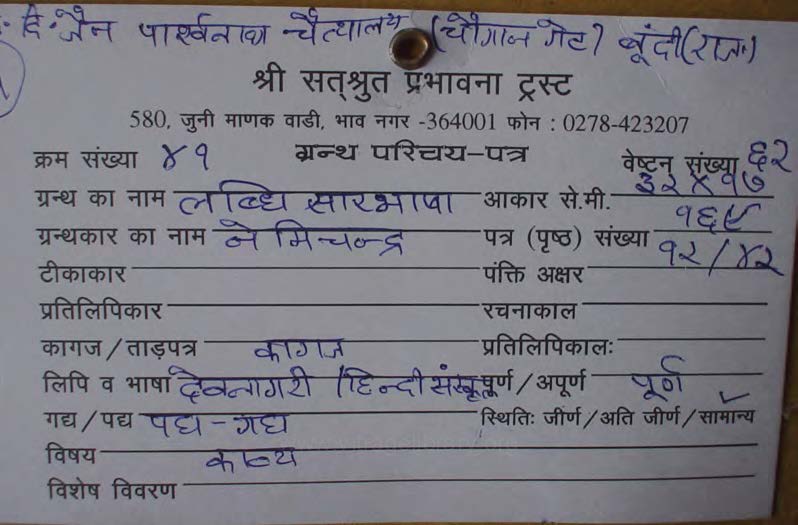 दि. जैन पार्श्वनाथ चैत्यालय (चौगान गेट) बूंदी (राज.)
श्री सत्श्रुत प्रभावना ट्रस्ट
580, जुनी माणक वाडी, भाव नगर -364001 फोन : 0278-423207
क्रम संख्या ४१ ग्रन्थ परिचय-पत्र वेष्टन संख्या ६२
ग्रन्थ का नाम लब्धि सारभाषा आकार से.मी. ३२४१७
ग्रन्थकार का नाम नेमिचन्द्र पत्र (पृष्ठ) संख्या १६९
टीकाकार पंक्ति अक्षर १२/४२
प्रतिलिपिकार रचनाकाल
कागज/ताड़पत्र कागज प्रतिलिपिकालः
लिपि व भाषा देवनागरी /हिन्दी संस्कृत पूर्ण/अपूर्ण पूर्ण
गद्य/पद्य पद्य-गद्य स्थितिः जीर्ण/अति जीर्ण/सामान्य ✓
विषय काव्य
विशेष विवरण